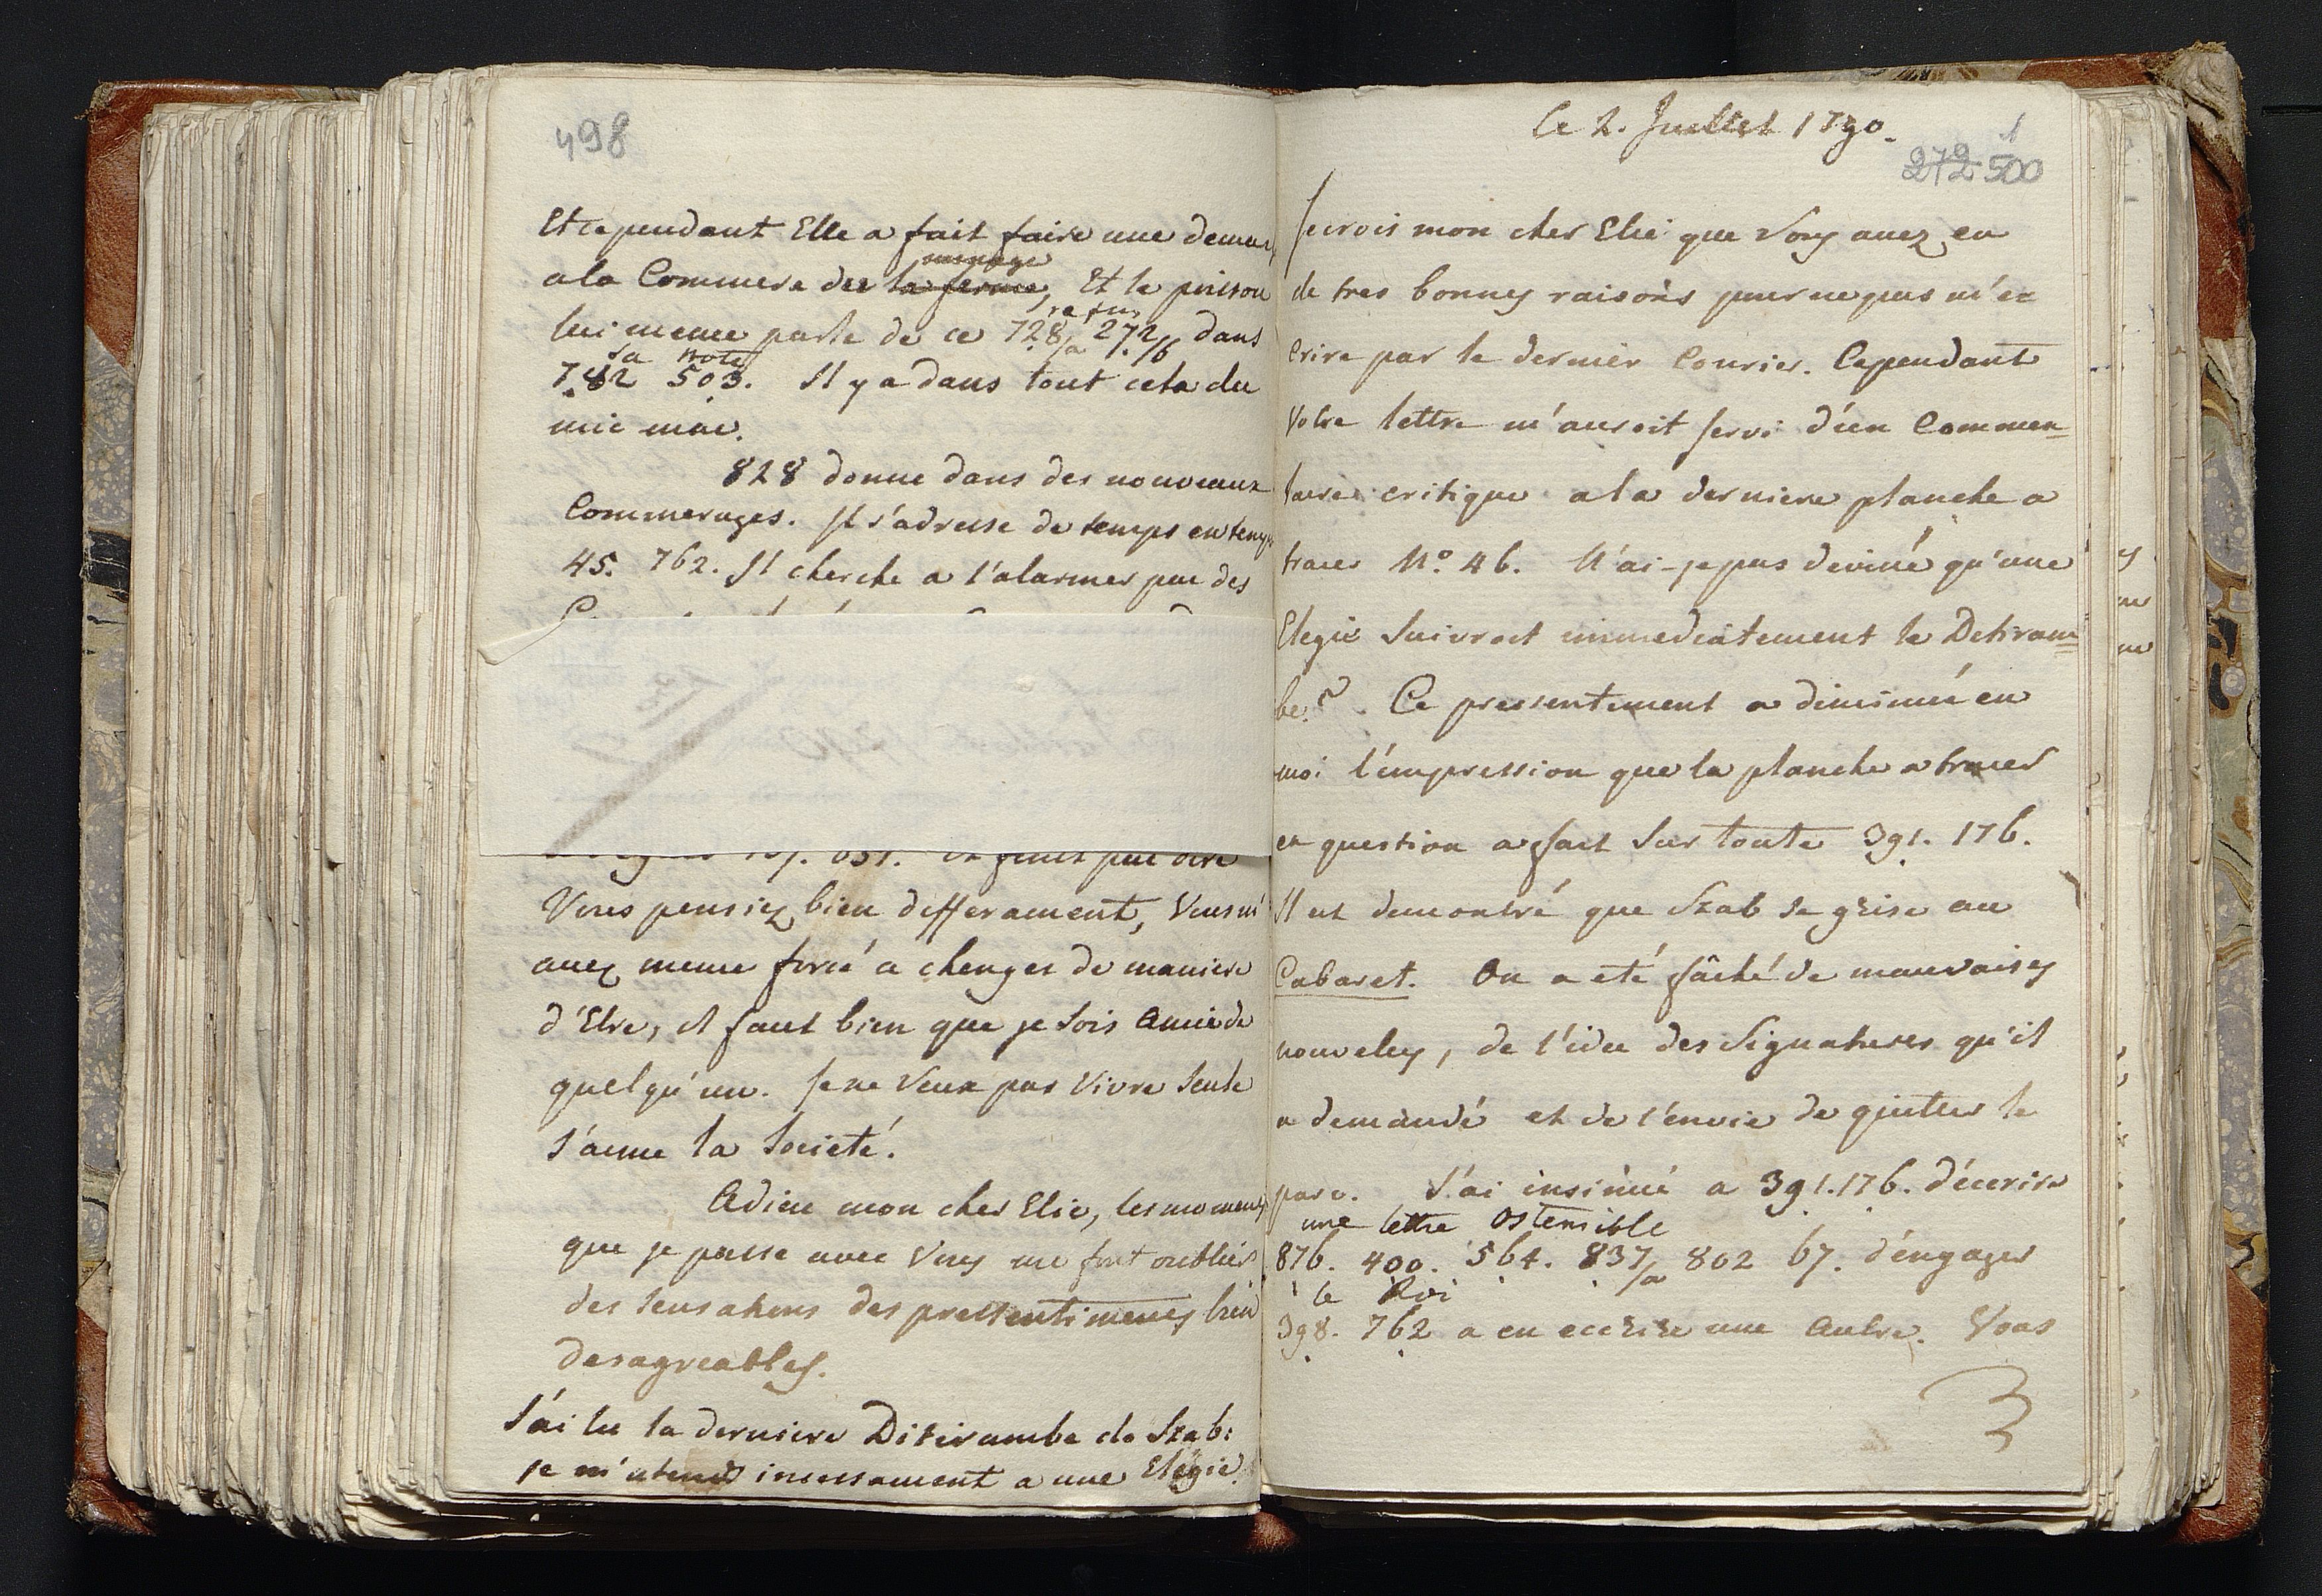 498
Et cependant Elle a fait faire une demar
menage
a la Commere de la ferme, Et le poisson
refus
lui meme parle de ce 728/a 272/b dans
sa note
782 503. Il y a dans tout cela du
mic mac.
828 donne dans des nouveaux
Commerages. Il s'adresse de temps en temps
45. 762. Il cherche a l'alarmer par des
851. et finit par dire
Vous pensiez bien differament, Vous m'
avez meme forcé a changer de maniere
d'Etre, il faut bien que je sois Amie de
quelqu'un. Je ne Veux pas Vivre seule
J'aime la Societé.
Adieu mon cher Elie, les momens
que je passe avec Vous me font oublier
des sensations des pressentimens bien
desagreables.
J'ai lu la derniere Ditirambe de Szab:
je m'atends incessament a une Elegie.
le 2. Juillet 1790.
1
272 500
Je crois mon cher Elie que Vous avez eu
de tres bonnes raisons pour ne pas m'e=
crire par le dernier Courier. Cependant
Votre lettre m'auroit servi d'un Commen=
taire critique a la derniere planche a
tracer No. 46. N'ai-je pas deviné qu'une
Elegie Suivroit immediatement le Detiram=
be? Ce pressentiment a diminué en
moi l'impression que la planche a tracer
en question a fait sur toute 391. 176.
Il est demontré que Szab se grise au
Cabaret. On a eté fâché de mauvaises
nouveles, de l'idee des Signatures qu'il
a demandé et de l'envie de quitter le
parc. J'ai insinué a 391. 176. d'ecrire
une lettre Ostensible
876. 400. 564. 837/a 802 67. d'engager
le Roi
398. 762 a en ecrire une Autre. Vous